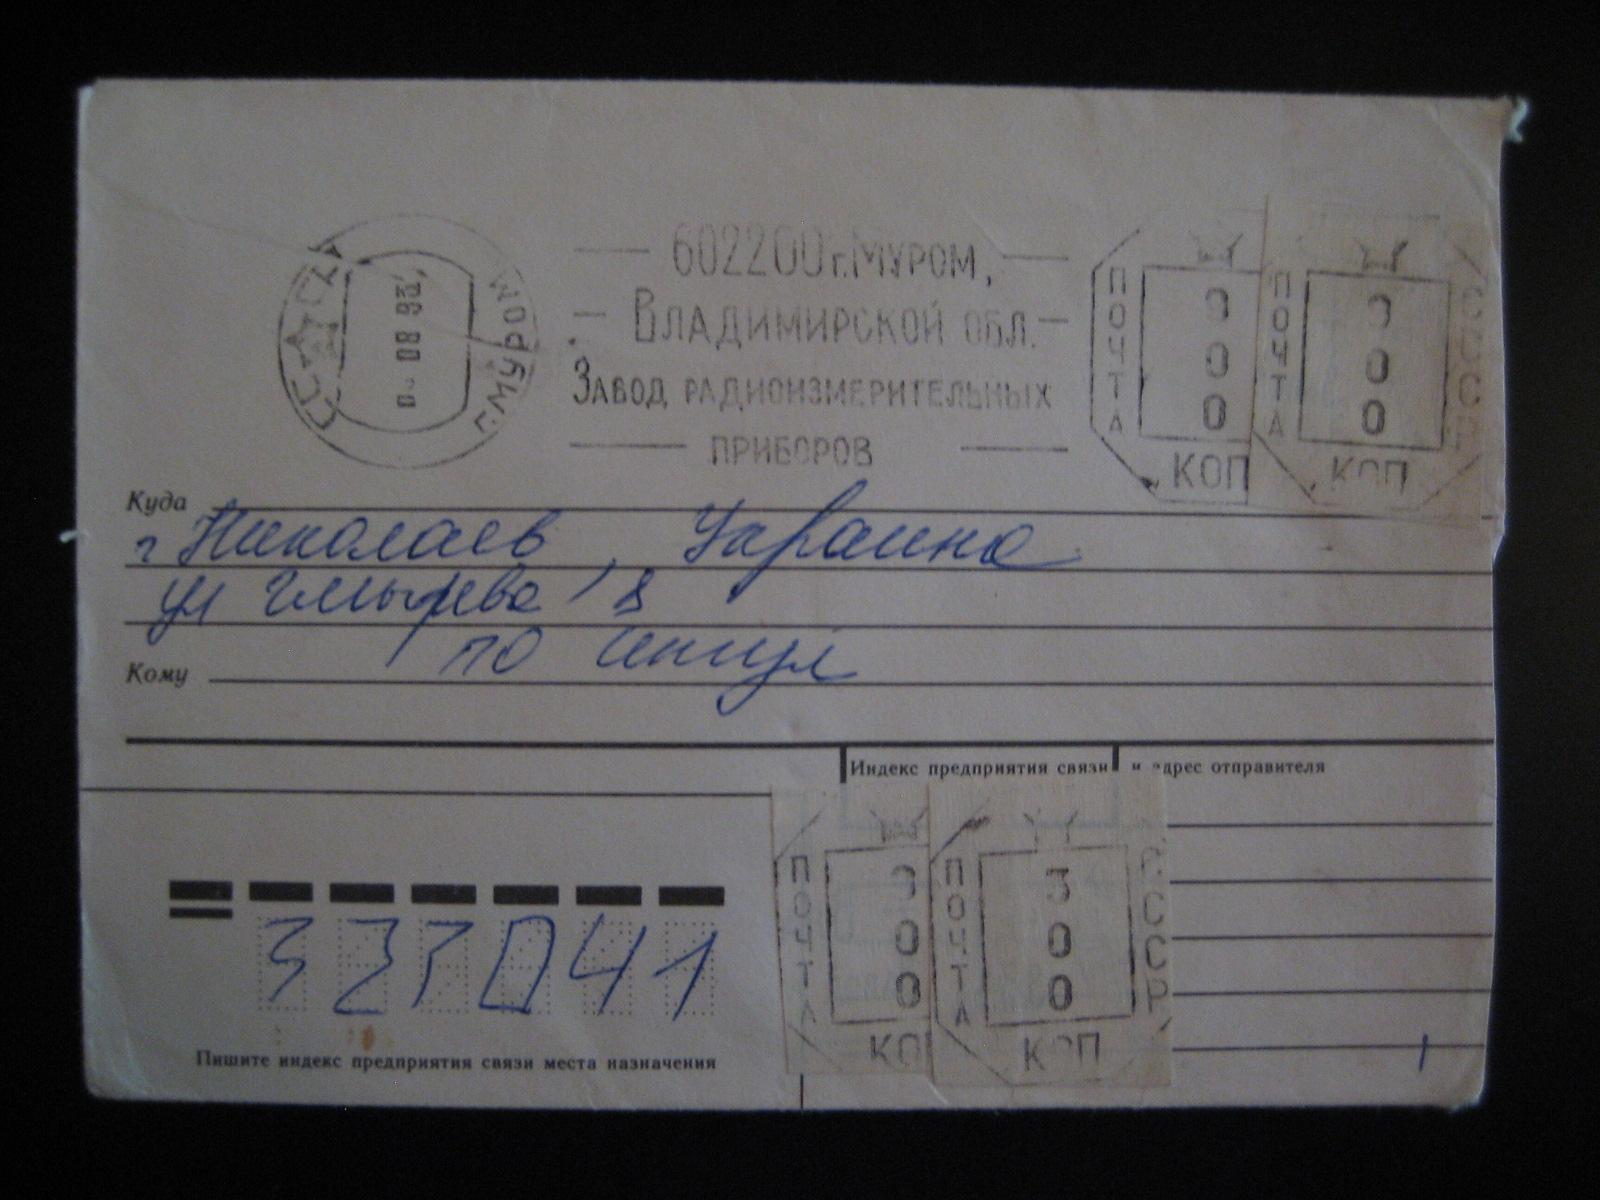 г. МУРОМ
602200 г. МУРОМ,
ВЛАДИМИРСКОЙ ОБЛ.
ЗАВОД РАДИОИЗМЕРИТЕЛЬНЫХ
ПРИБОРОВ
ПОЧТА
КОП
ПОЧТА 00 КОП СССР
Куда
г Николаев, Украина
ул
Кому
Индекс предприятия связи и адрес отправителя
ПОЧТА 00
ПОЧТА 300 КОП СССР
327041
Пишите индекс предприятия связи места назначения